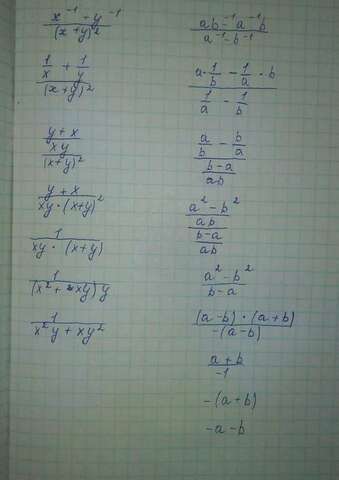 x⁻¹ + y⁻¹ / (x + y)²
1/x + 1/y / (x + y)²
y + x / xy / (x+y)²
y + x / xy · (x+y)²
1 / xy · (x+y)
1 / (x² + xy) y
1 / x²y + xy²
ab⁻¹ - a⁻¹b / a⁻¹ - b⁻¹
a · 1/b - 1/a · b / 1/a - 1/b
a/b - b/a / b-a / ab
a² - b² / ab / b-a / ab
a² - b² / b - a
(a-b) · (a+b) / -(a-b)
a + b / -1
-(a+b)
-a-b